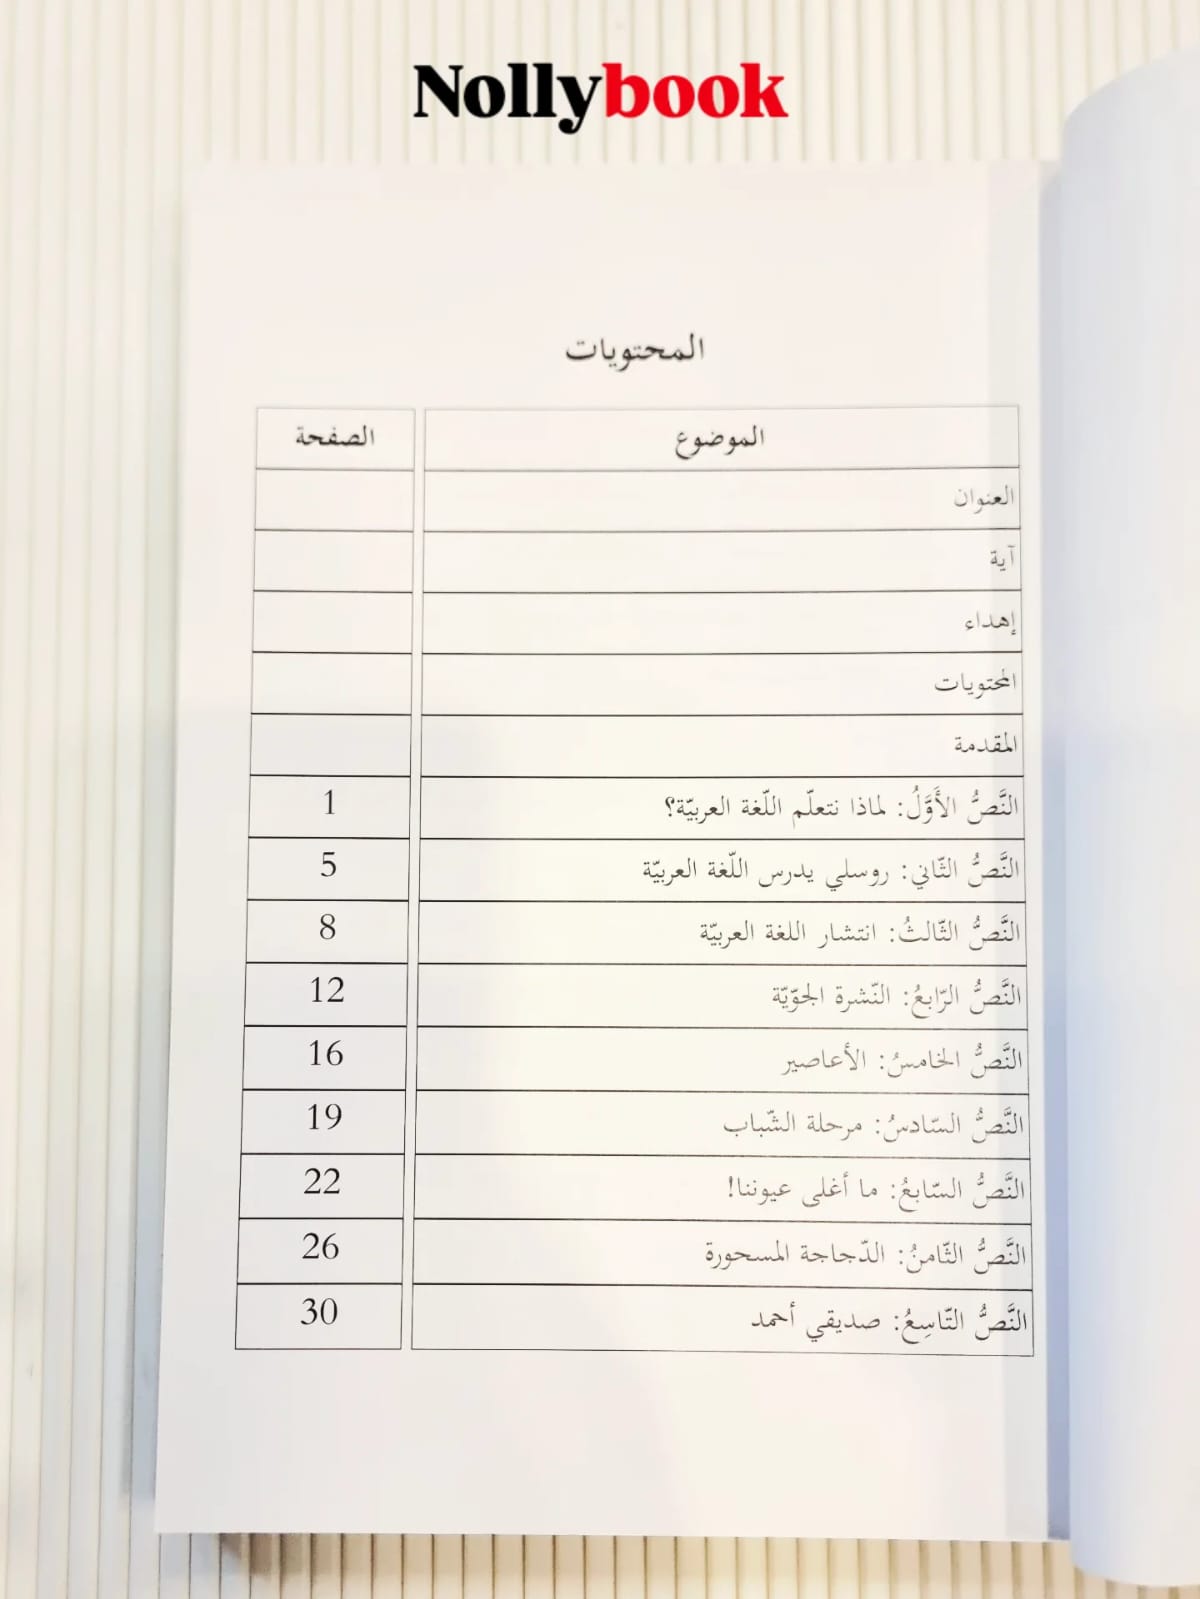 Nollybook
المحتويات
الموضوع الصفحة
العنوان
آية
إهداء
المحتويات
المقدمة
النَّصُّ الأَوَّلُ: لماذا نتعلّم اللّغة العربيّة؟ 1
النَّصُّ الثّاني: روسلي يدرس اللّغة العربيّة 5
النَّصُّ الثّالثُ: انتشار اللغة العربيّة 8
النَّصُّ الرّابعُ: النّشرة الجوّيّة 12
النَّصُّ الخامسُ: الأعاصير 16
النَّصُّ السّادسُ: مرحلة الشّباب 19
النَّصُّ السّابعُ: ما أغلى عيوننا! 22
النَّصُّ الثّامنُ: الدّجاجة المسحورة 26
النَّصُّ التّاسِعُ: صديقي أحمد 30